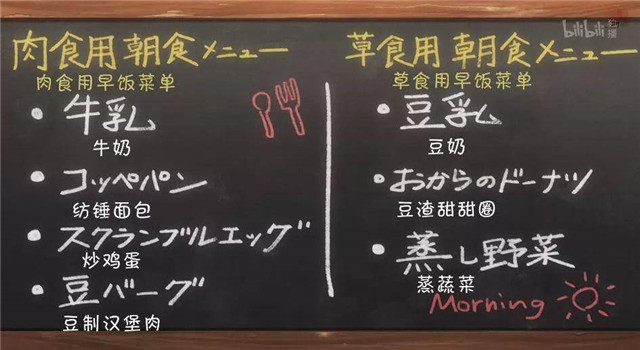 bilibili 独播
肉食用朝食メニュー
肉食用早饭菜单
・牛乳
牛奶
・コッペパン
纺锤面包
・スクランブルエッグ
炒鸡蛋
・豆バーグ
豆制汉堡肉
草食用朝食メニュー
草食用早饭菜单
・豆乳
豆奶
・おからのドーナツ
豆渣甜甜圈
・蒸し野菜
蒸蔬菜
Morning